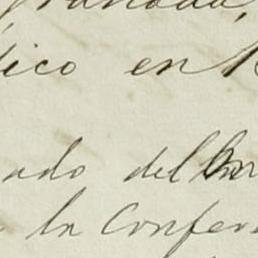 Granada,
ico en
ado del
en la Confer